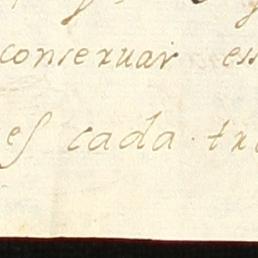 conseruar es
es cada tr